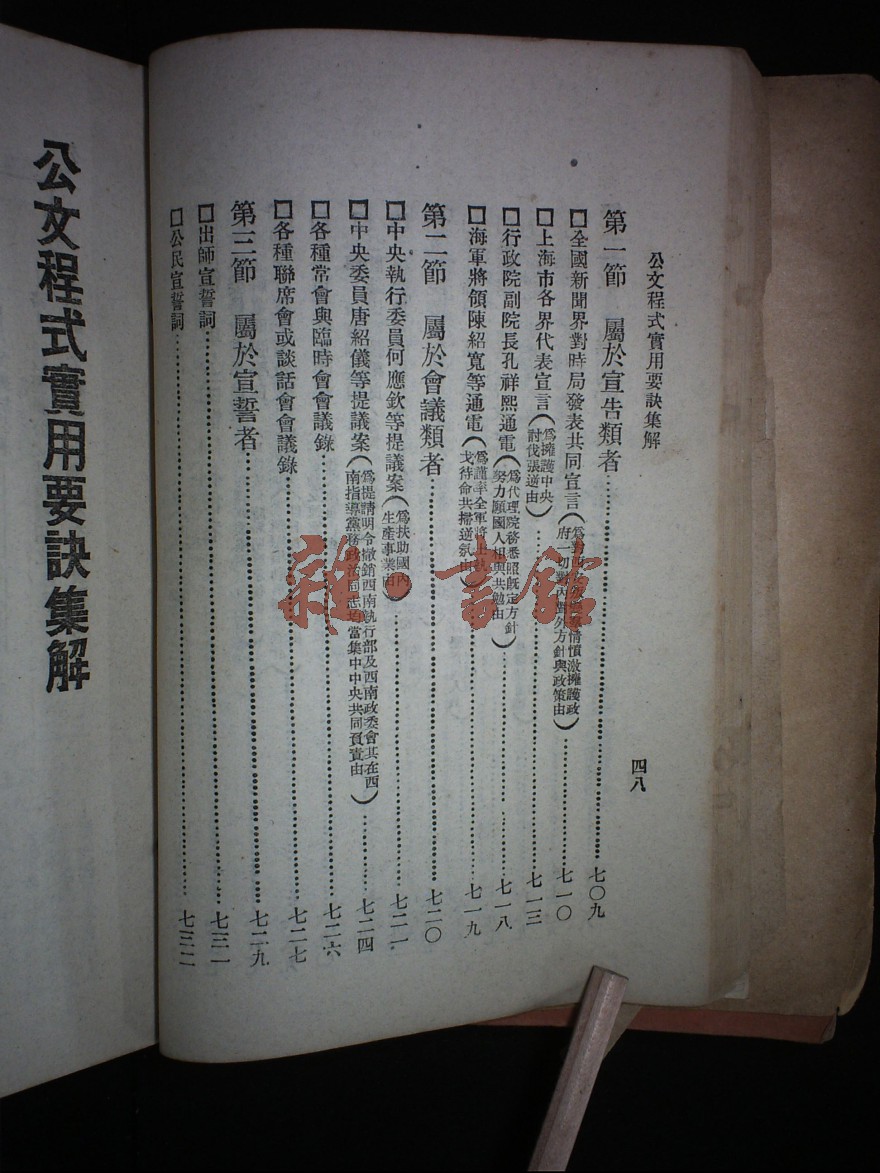 公文程式實用要訣集解
四八
第一節　屬於宣告類者……七〇九
□全國新聞界對時局發表共同宣言（擁護政府一切對內對外方針與政策由）……七一〇
□上海市各界代表宣言（爲擁護中央討伐張逆由）……七一三
□行政院副院長孔祥熙通電（爲代理院務悉照既定方針努力願國人相與共勉由）……七一八
□海軍將領陳紹寬等通電（爲謹率全軍將士執戈待命共掃逆氛由）……七一九
第二節　屬於會議類者……七二〇
□中央執行委員何應欽等提議案（爲扶助國內生產事業由）……七二一
□中央委員唐紹儀等提議案（爲提請明令撤銷西南執行部及西南政委會其在西南指導黨務政治同志均當集中中央共同負責由）……七二四
□各種常會與臨時會會議錄……七二六
□各種聯席會或談話會會議錄……七二七
第三節　屬於宣誓者……七二九
□出師宣誓詞……七三一
□公民宣誓詞……七三二
公文程式實用要訣集解
雜·書館